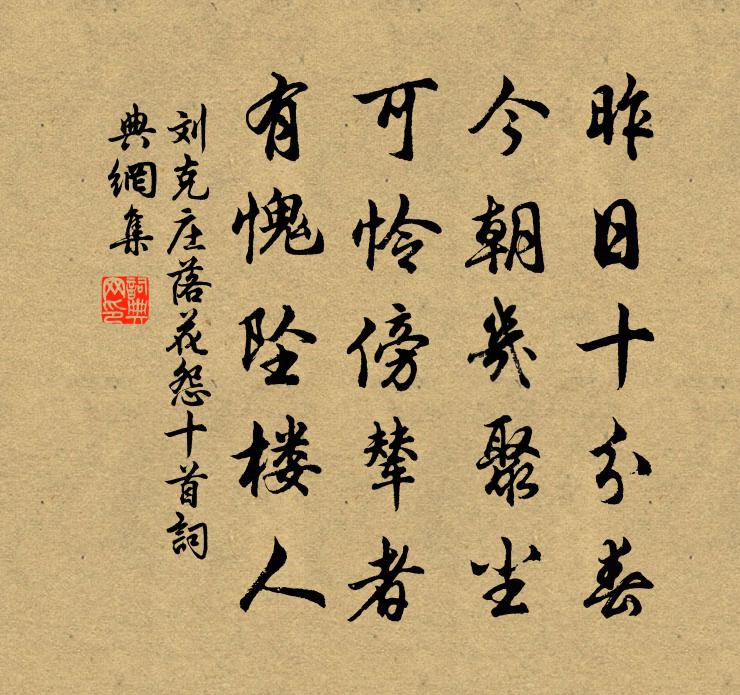 昨日十分春
今朝幾聚尘
可怜傍辇者
有愧坠楼人
刘克庄落花怨十首詞
典網集
詞典网印